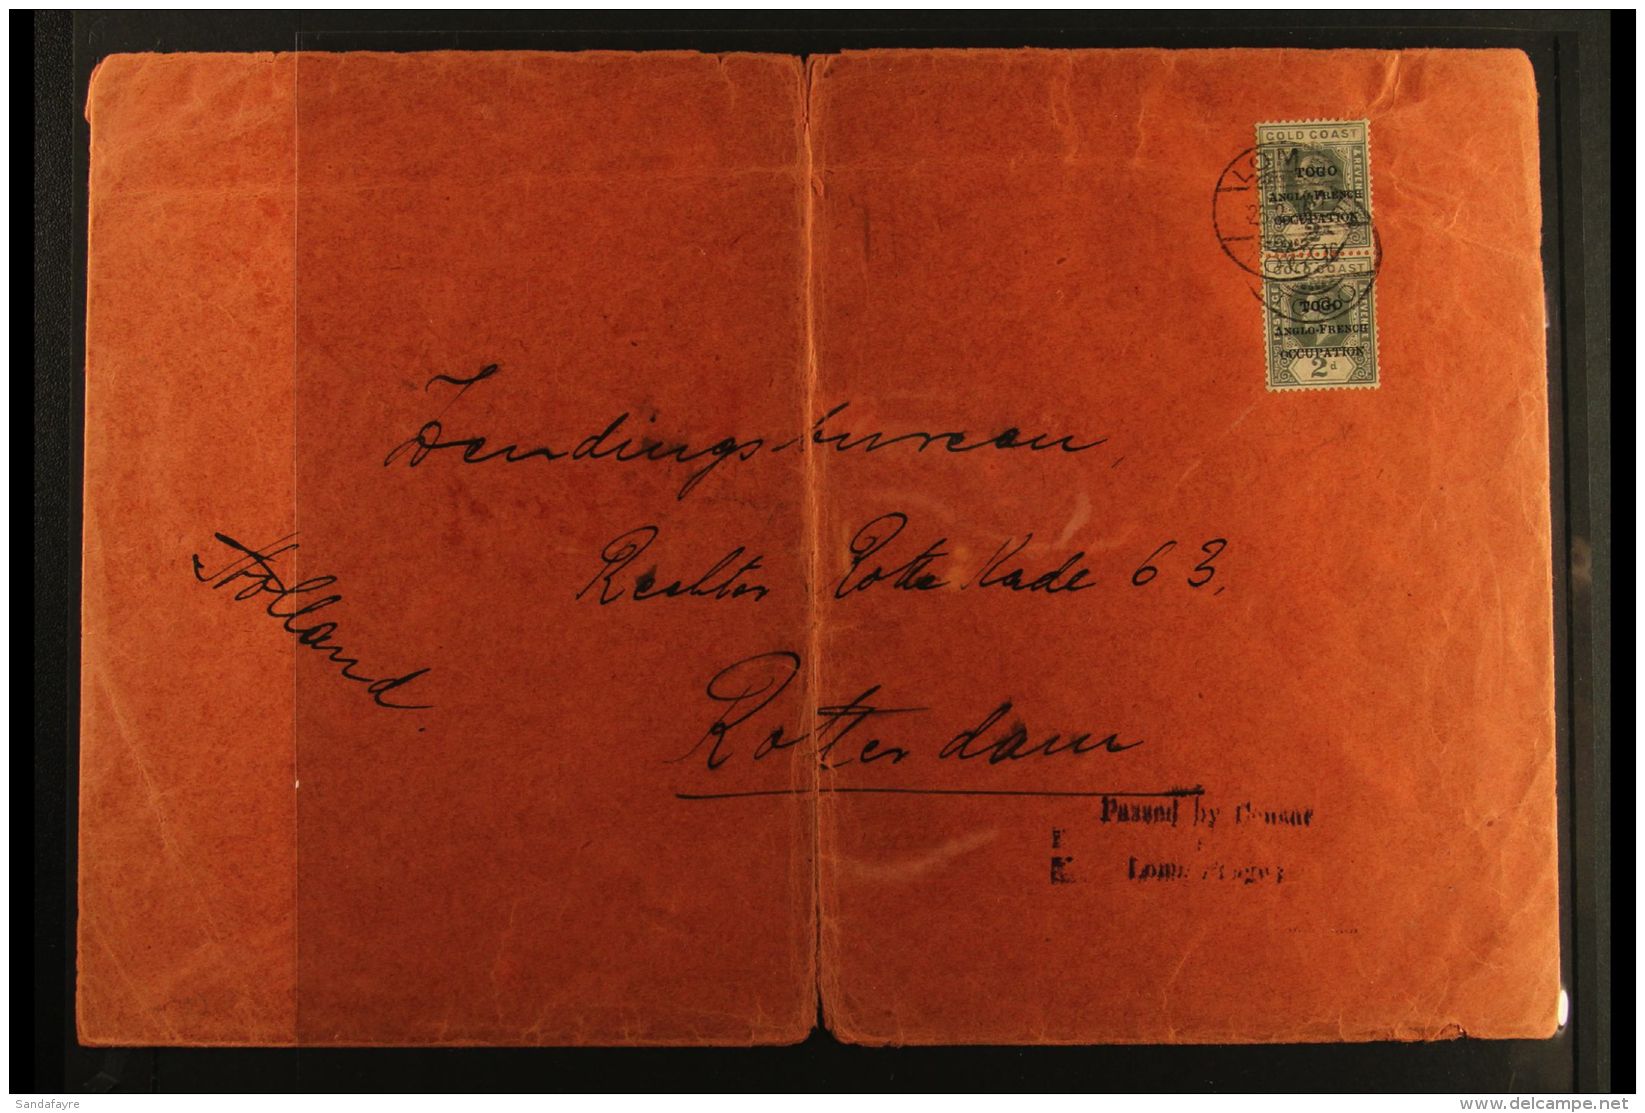 GOLD COAST
& REVENUE
TOGO
ANGLO-FRENCH
OCCUPATION
LOM
GOLD COAST
POSTAGE
& REVENUE
TOGO
ANGLO-FRENCH
OCCUPATION
2d
Zendingsbureau,
Rechter Rotte Kade 63,
Holland.
Rotterdam
Passed by Censor
Lome Togo
Sandafayre
www.delcampe.net